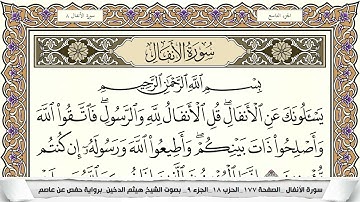 الجزء التاسع
سورة الأنفال ٨
سُورَةُ الأَنفَالِ
بِسْمِ اللَّهِ الرَّحْمَٰنِ الرَّحِيمِ
يَسْـَٔلُونَكَ عَنِ ٱلْأَنفَالِ ۖ قُلِ ٱلْأَنفَالُ لِلَّهِ وَٱلرَّسُولِ ۖ فَٱتَّقُوا۟ ٱللَّهَ
وَأَصْلِحُوا۟ ذَاتَ بَيْنِكُمْ ۖ وَأَطِيعُوا۟ ٱللَّهَ وَرَسُولَهُۥٓ إِن كُنتُم
سورة الأنفال _ الصفحة ١٧٧ _ الحزب ١٨ _ الجزء ٩ _ بصوت الشيخ هيثم الدخين _ برواية حفص عن عاصم